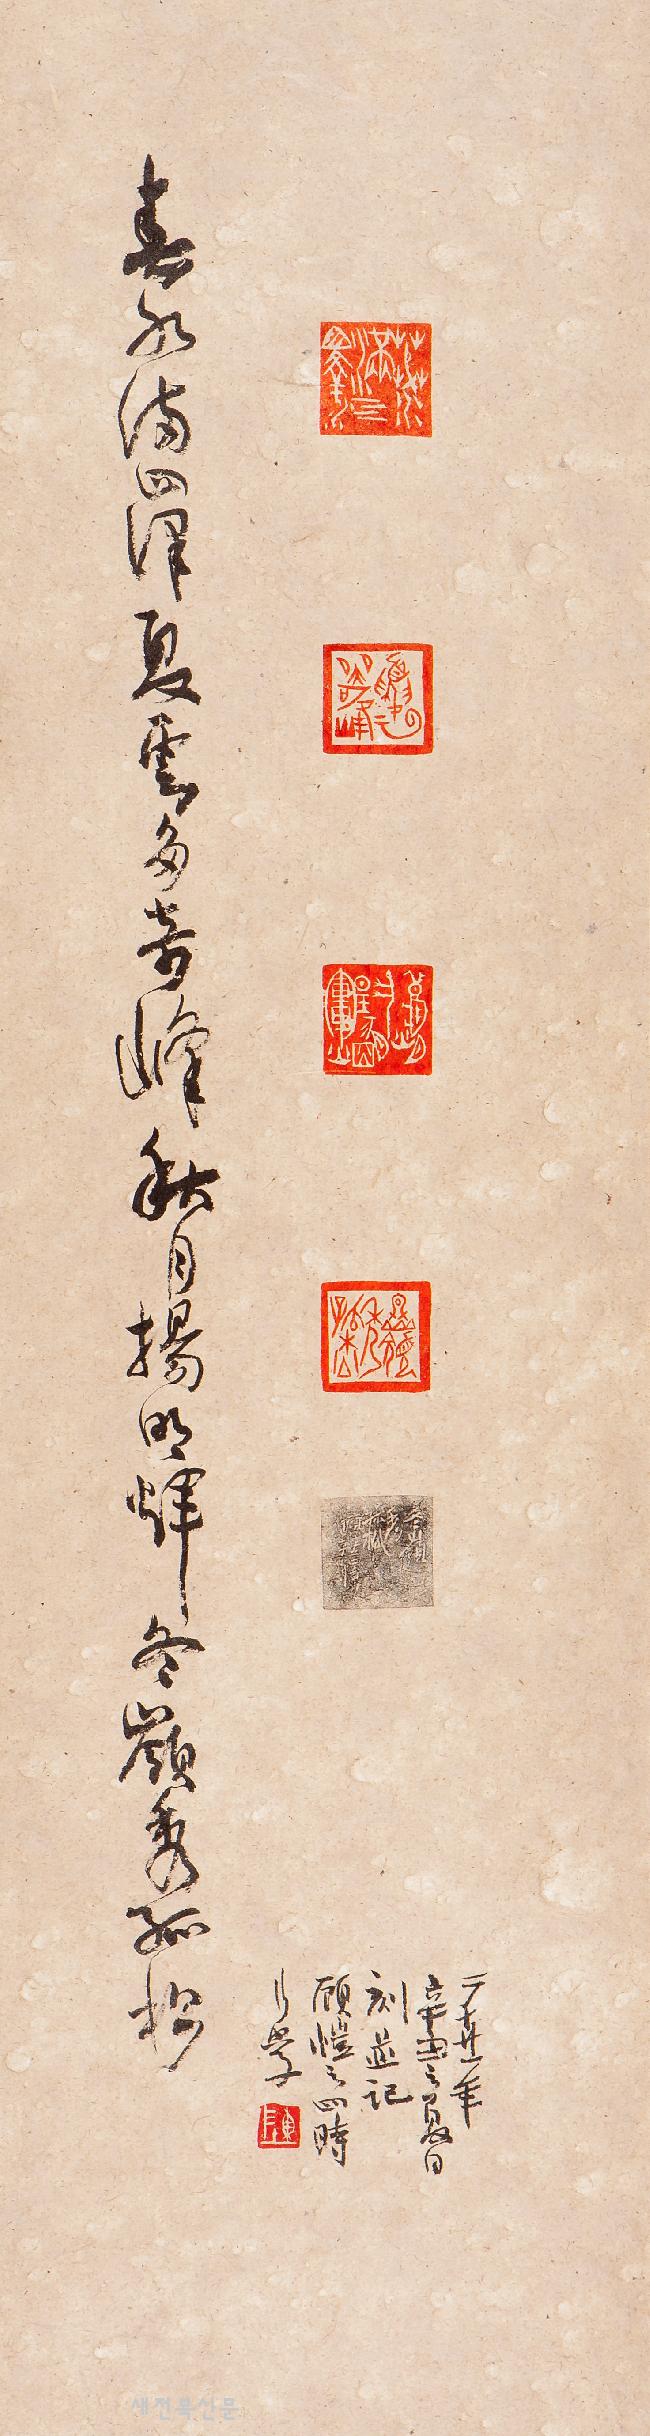 春水滿四澤夏雲多奇峰秋月揚明輝冬嶺秀孤松
二千廿一年
辛丑之夏日
刻並記
顧愷之四時
새전북신문